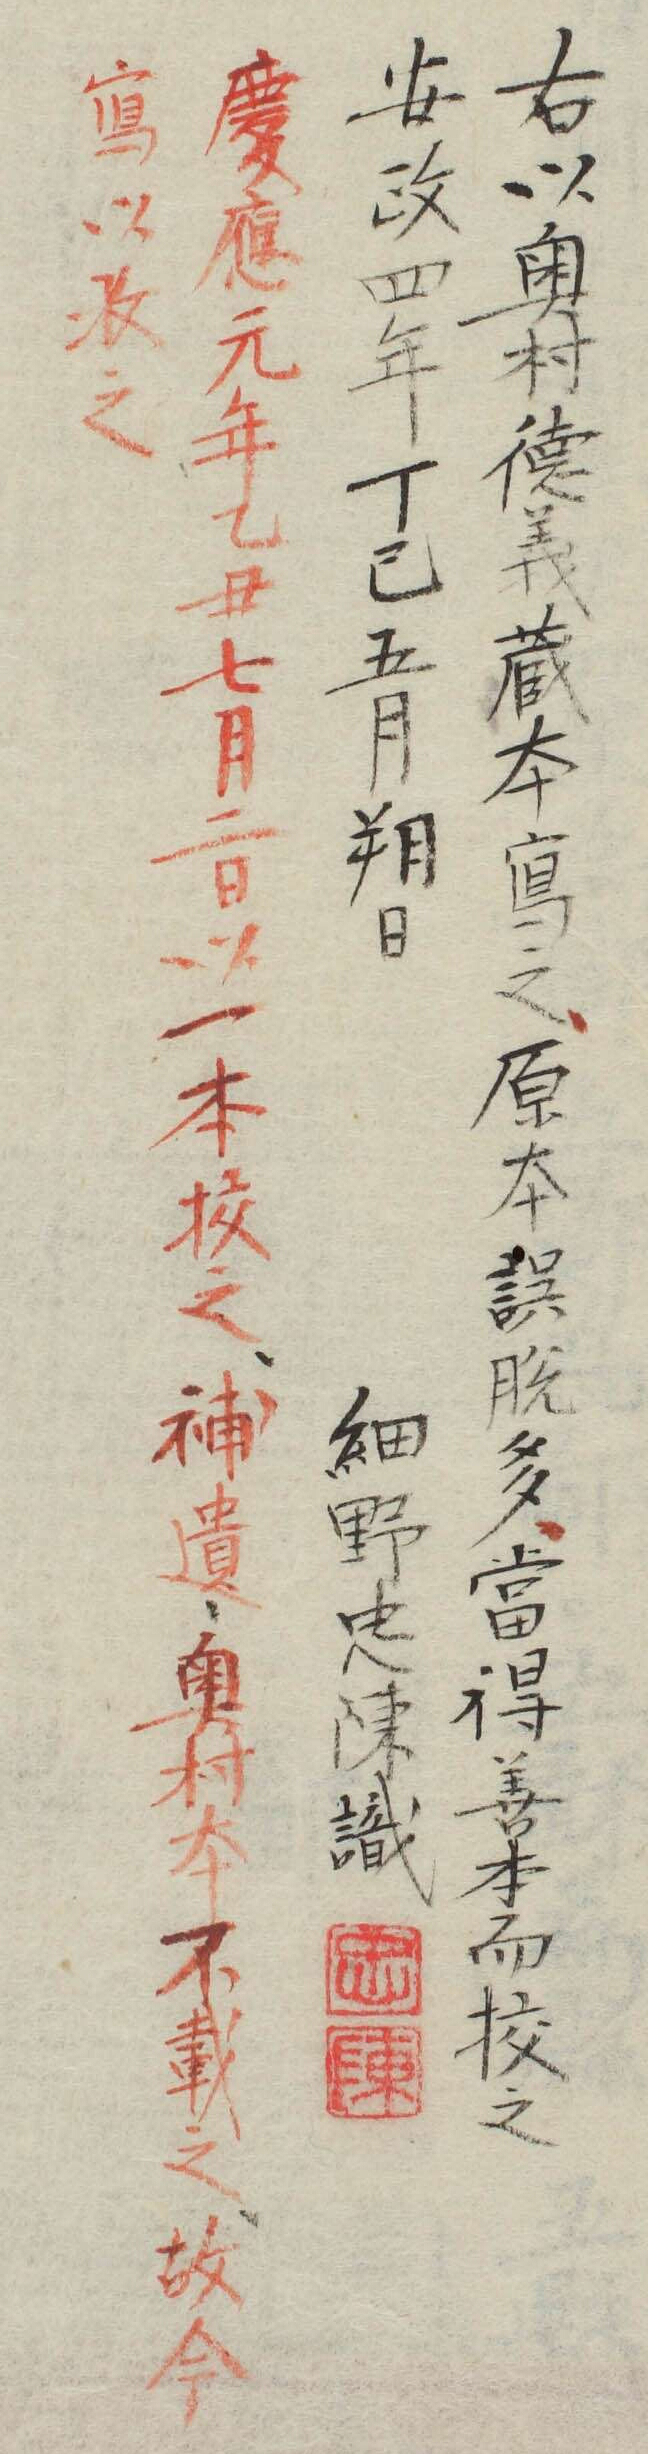 右以奥村德義蔵本寫之、原本誤脱多、當得善本而挍之
安政四年丁巳五月朔日 細野忠陳識
忠
陳
慶應元年乙丑七月二日以一本挍之、補遺、奥村本不載之、故今
寫以収之